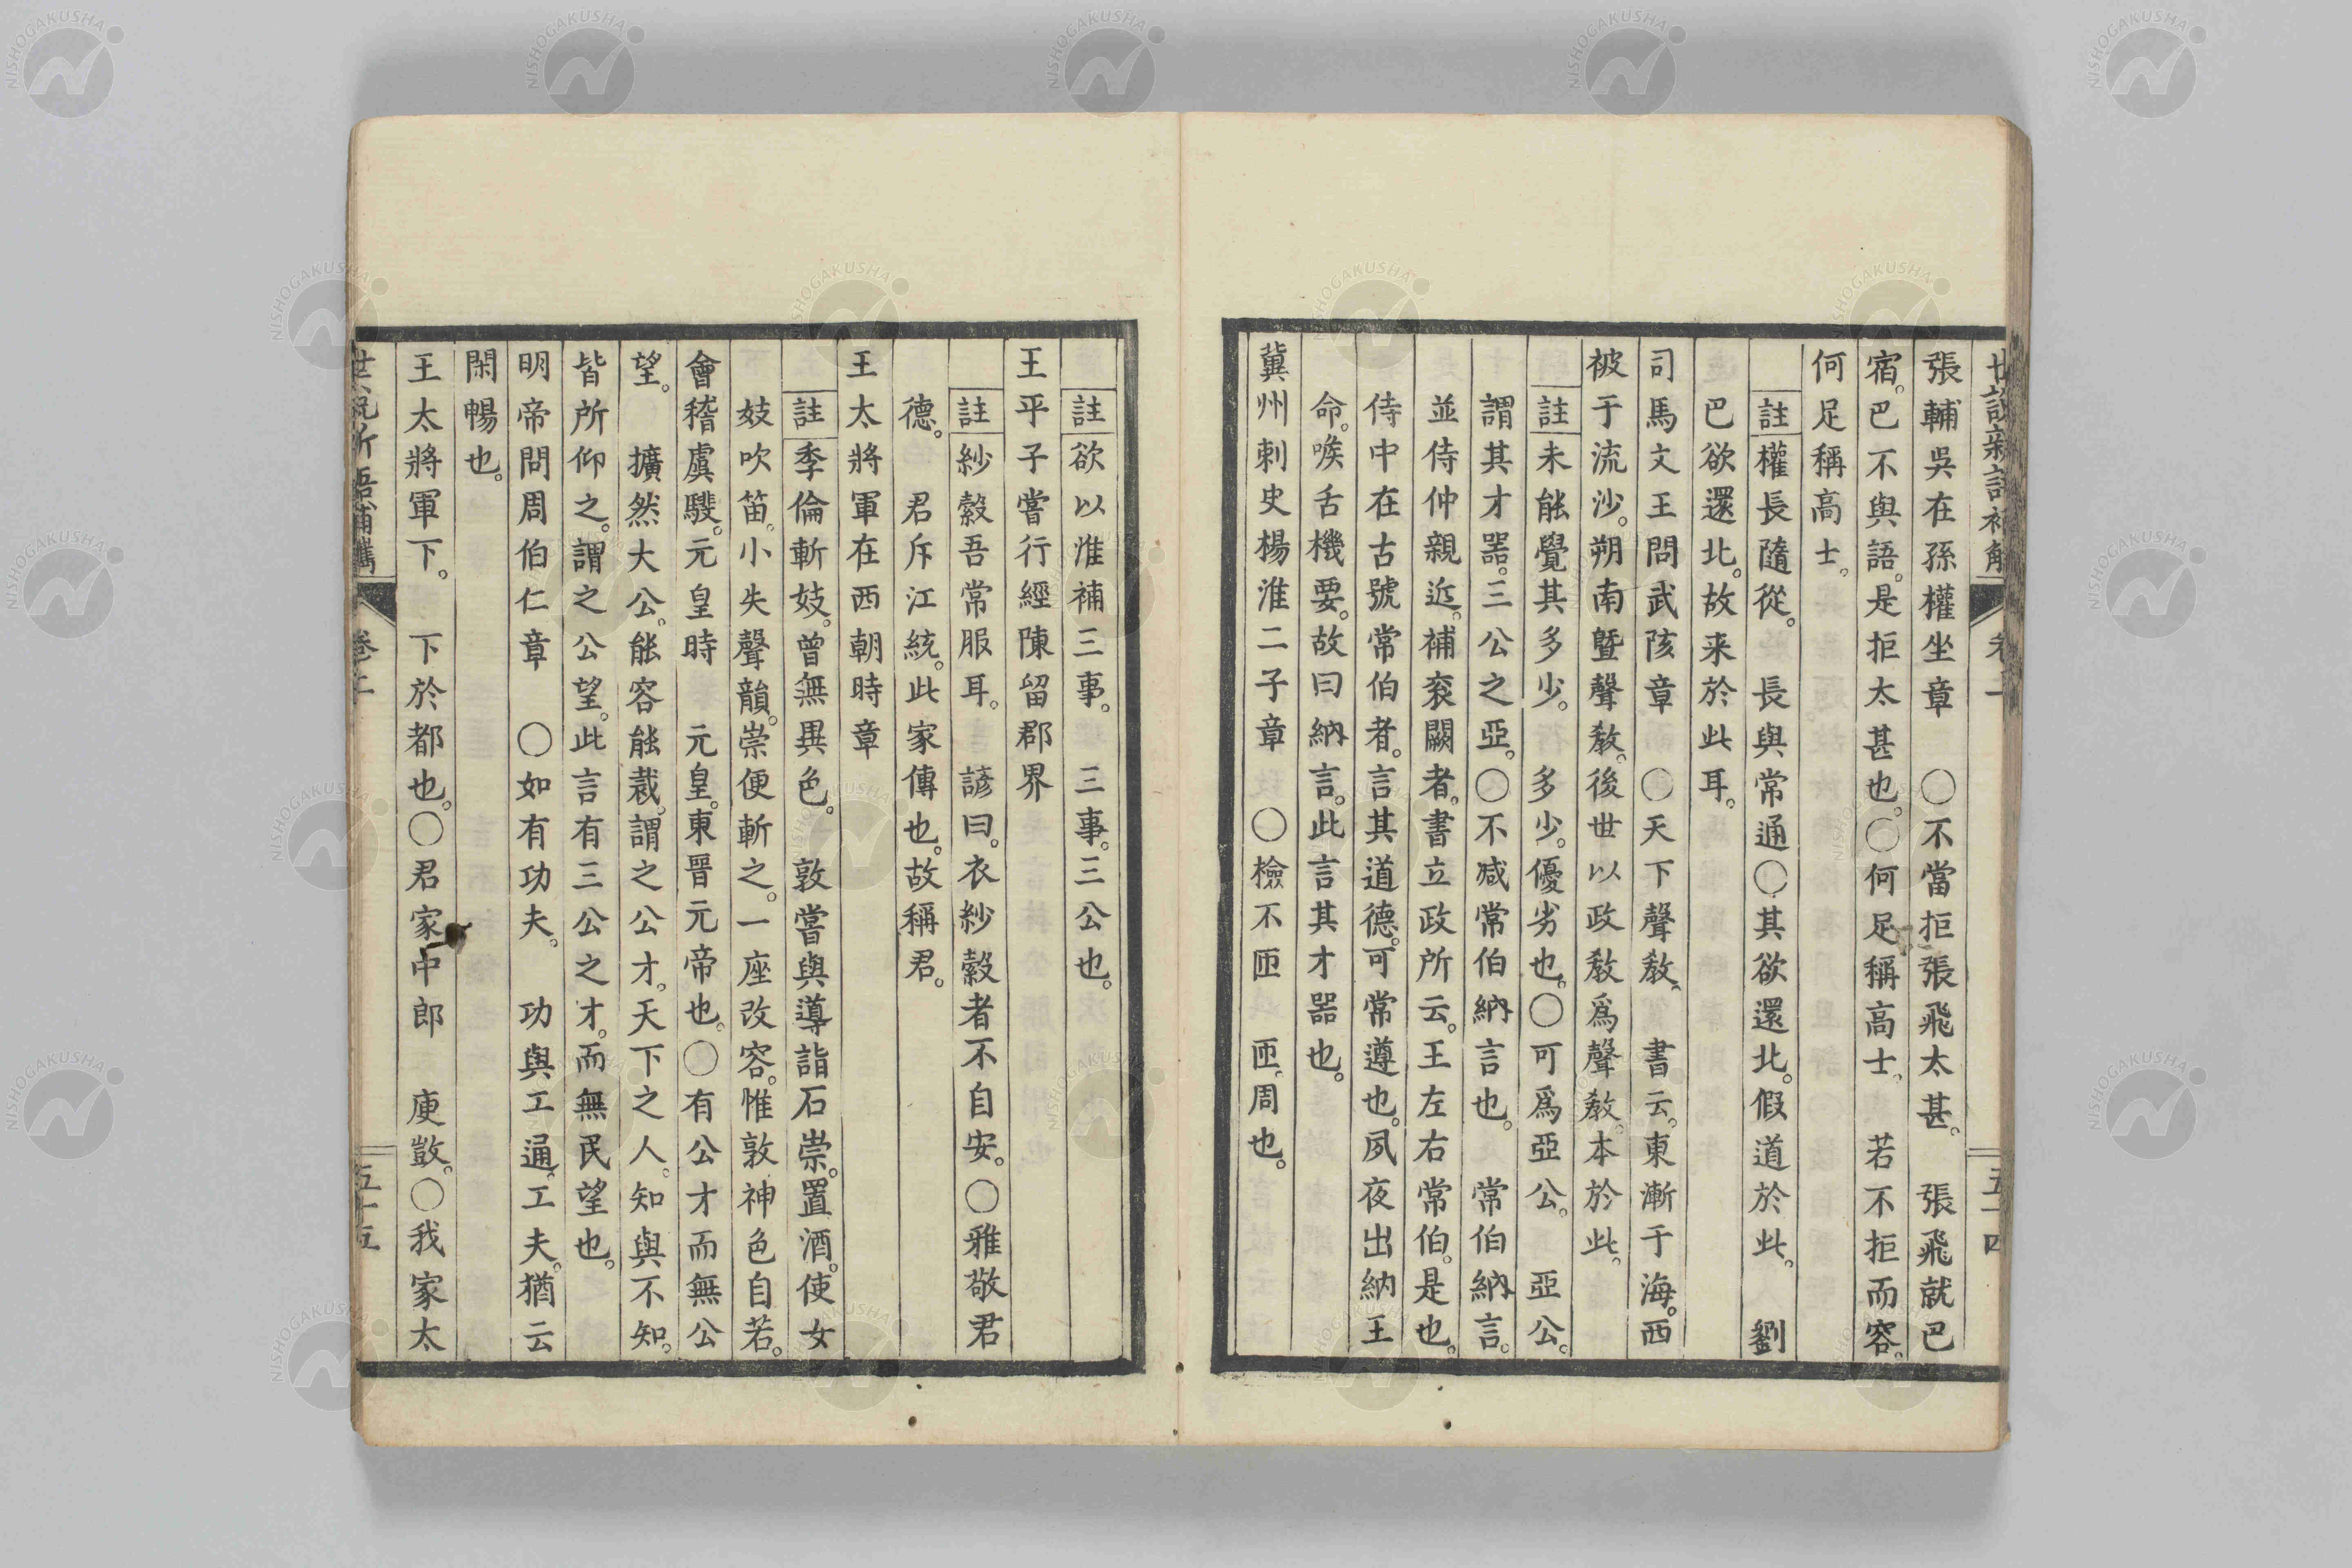 張輔吳在孫權坐章　〇不當拒張飛太甚。　張飛就巴
宿。巴不與語。是拒太甚也。〇何足稱高士、　若不拒而容。
何足稱高士、
註權長隨從。　長與常通〇其欲還北。假道於此、　劉
巴欲還北。故来於此耳。
司馬文王問武陔章　〇天下聲敎、　書云、東漸于海。西
被于流沙。朔南曁聲敎。後世以政敎爲聲敎。本於此、
註未能覺其多少。　多少。優劣也。〇可爲亞公。　亞公。
謂其才器。三公之亞。〇不减常伯納言也。　常伯納言。
並侍仲親近。補衮闕者。書立政所云。王左右常伯。是也。
侍中在古號常伯者。言其道德。可常遵也。夙夜出納王
命。喉舌機要。故曰納言。此言其才器也。
冀州刺史楊淮二子章　〇檢不匝　匝。周也。
註欲以淮補三事。　三事。三公也。
王平子嘗行經陳留郡界
註紗縠吾常服耳。　諺曰。衣紗縠者不自安。〇雅敬君
德。　君斥江統。此家傳也。故稱君。
王太將軍在西朝時章
註季倫斬妓。曾無異色。　敦嘗與導詣石崇。置酒。使女
妓吹笛。小失聲韻。崇便斬之。一座改容。惟敦神色自若。
會稽虞𩦎。元皇時　元皇。東晉元帝也。〇有公才而無公
望。　擴然大公。能容能裁。謂之公才。天下之人。知與不知。
皆所仰之。謂之公望。此言有三公之才。而無民望也。
明帝問周伯仁章　〇如有功夫。　功與工通。工夫。猶云
閑暢也。
王太將軍下。　下於都也。〇君家中郎　庾敱。〇我家太
世說新語補觿　卷二　五十五